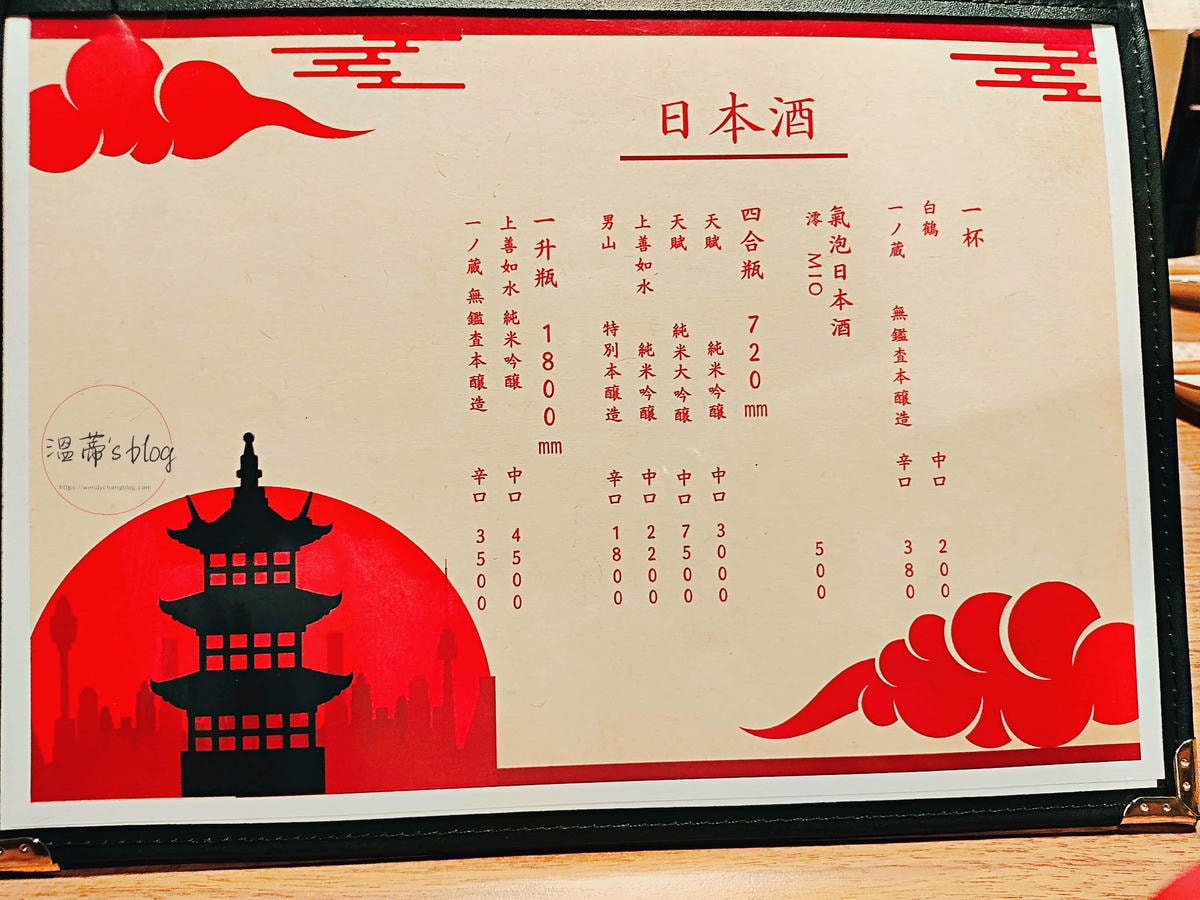 日本酒
一杯
白鶴 中口 200
一ノ蔵 無鑑査本醸造 辛口 380
氣泡日本酒
澪 MIO 500
四合瓶 720mm
天賦 純米吟醸 中口 3000
天賦 純米大吟醸 中口 7500
上善如水 純米吟醸 中口 2200
男山 特別本醸造 辛口 1800
一升瓶 1800mm
上善如水 純米吟醸 中口 4500
一ノ蔵 無鑑査本醸造 辛口 3500
溫蒂's blog
https://wendychangblog.com